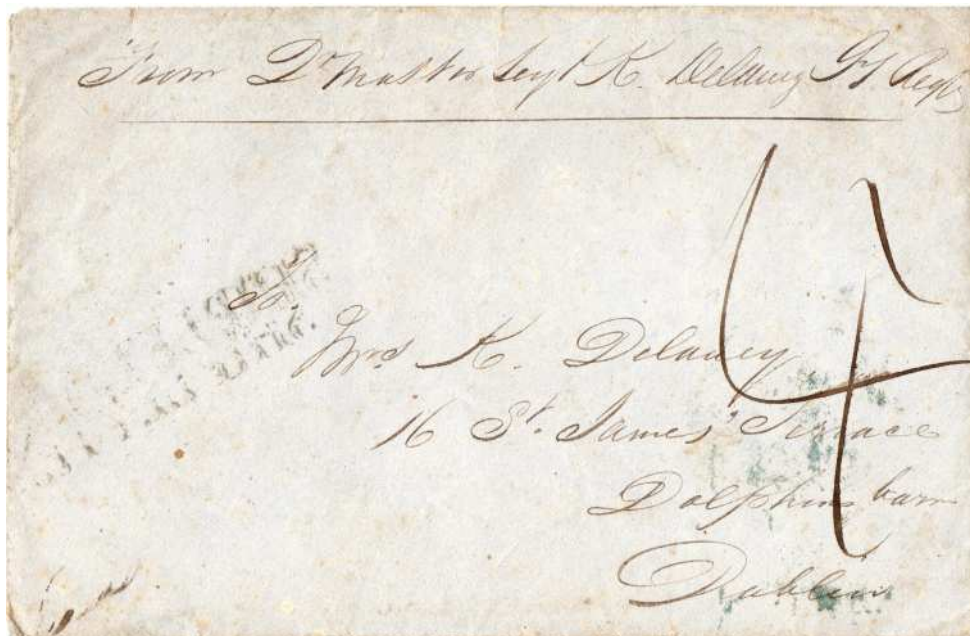 From Qr Master Sergt K. Delaney Regt
4
To,
Mrs K. Delaney
16 St. James' Terrace
Dolphins barn
Dublin